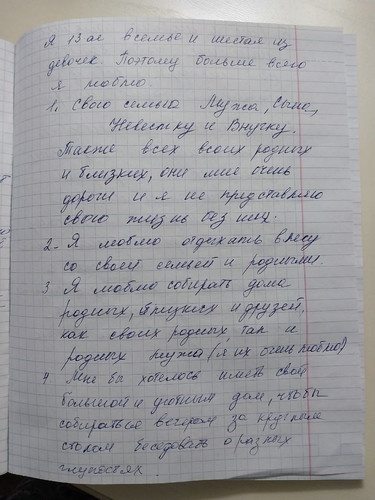 Я 13 ая в семье и шестая из
девочек. Поэтому больше всего
я люблю.
1. Свою семью Мужа, Сына,
Невестку и Внучку.
Также всех своих родных
и близких, они мне очень
дороги и я не представляю
свою жизнь без них.
2- Я люблю отдыхать в лесу
со своей семьей и родными.
3 Я люблю собирать дома
родных, близких и друзей,
как своих родных, так и
родных мужа (я их очень люблю)
4 Мне бы хотелось иметь свой
большой и уютным дом, чтобы
собираться вечером за круглым
столом беседовать о разных
глупостях.